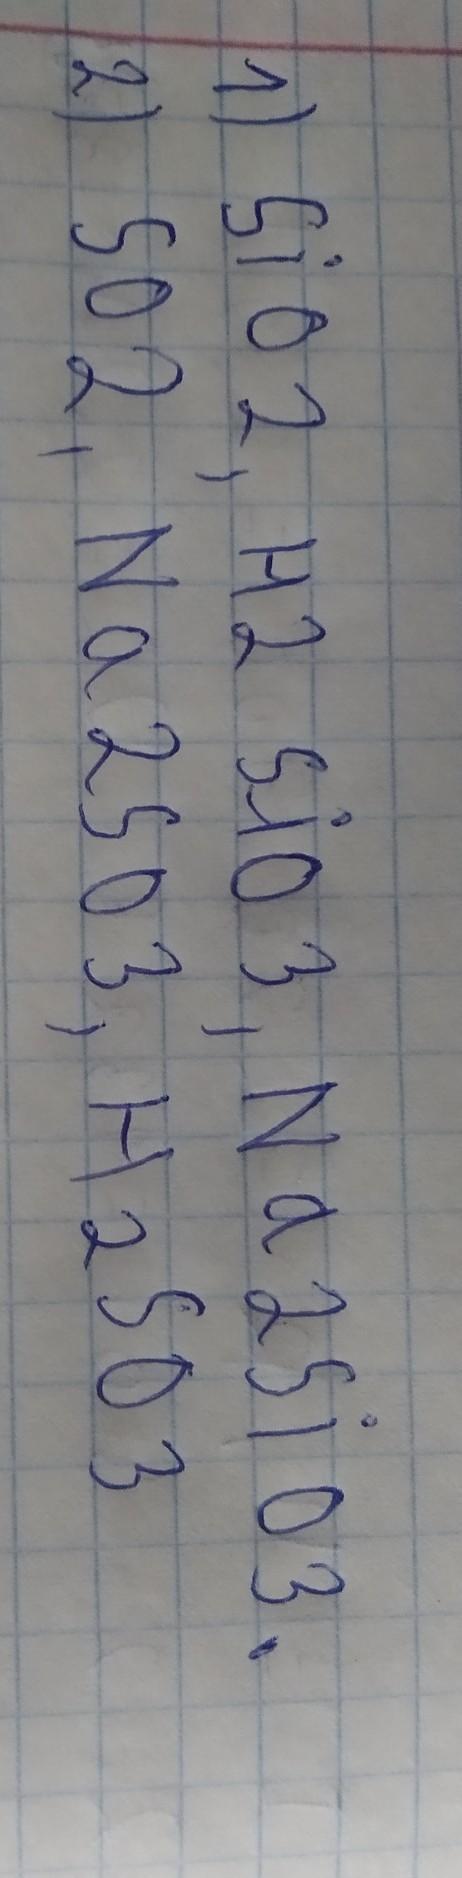 1) SiO2, H2SiO3, Na2SiO3.
2) SO2, Na2SO3, H2SO3